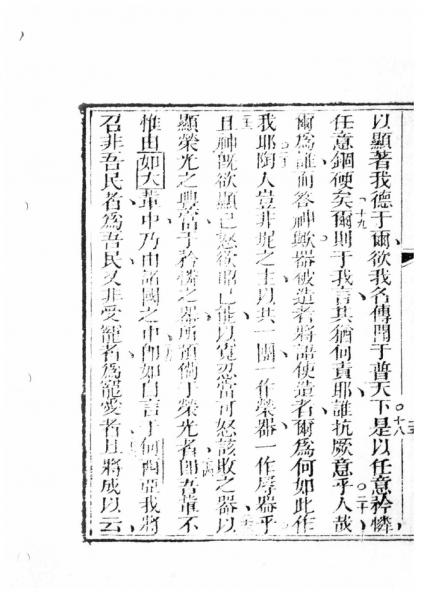 以顯著我德于爾欲我名傳聞于普天下十八是以任意矜憐
任意鋼硬矣十九爾則于我言其猶何責耶誰抗厥意乎二十人哉
爾為誰而答神歟器被造者將語使造者爾為何如此作
我耶陶人豈非坭之主以其一團一作榮器一作辱器乎
且神既欲顯己怒欲昭己能以寬忍當可怒該敗之器以
顯榮光之豐富于矜憐之器所預備于榮光者即吾輩不
惟由如大輩中乃由諸國之中即如自言于何西亞我將
召非吾民名為吾民又非受寵者為寵愛者且將成以云